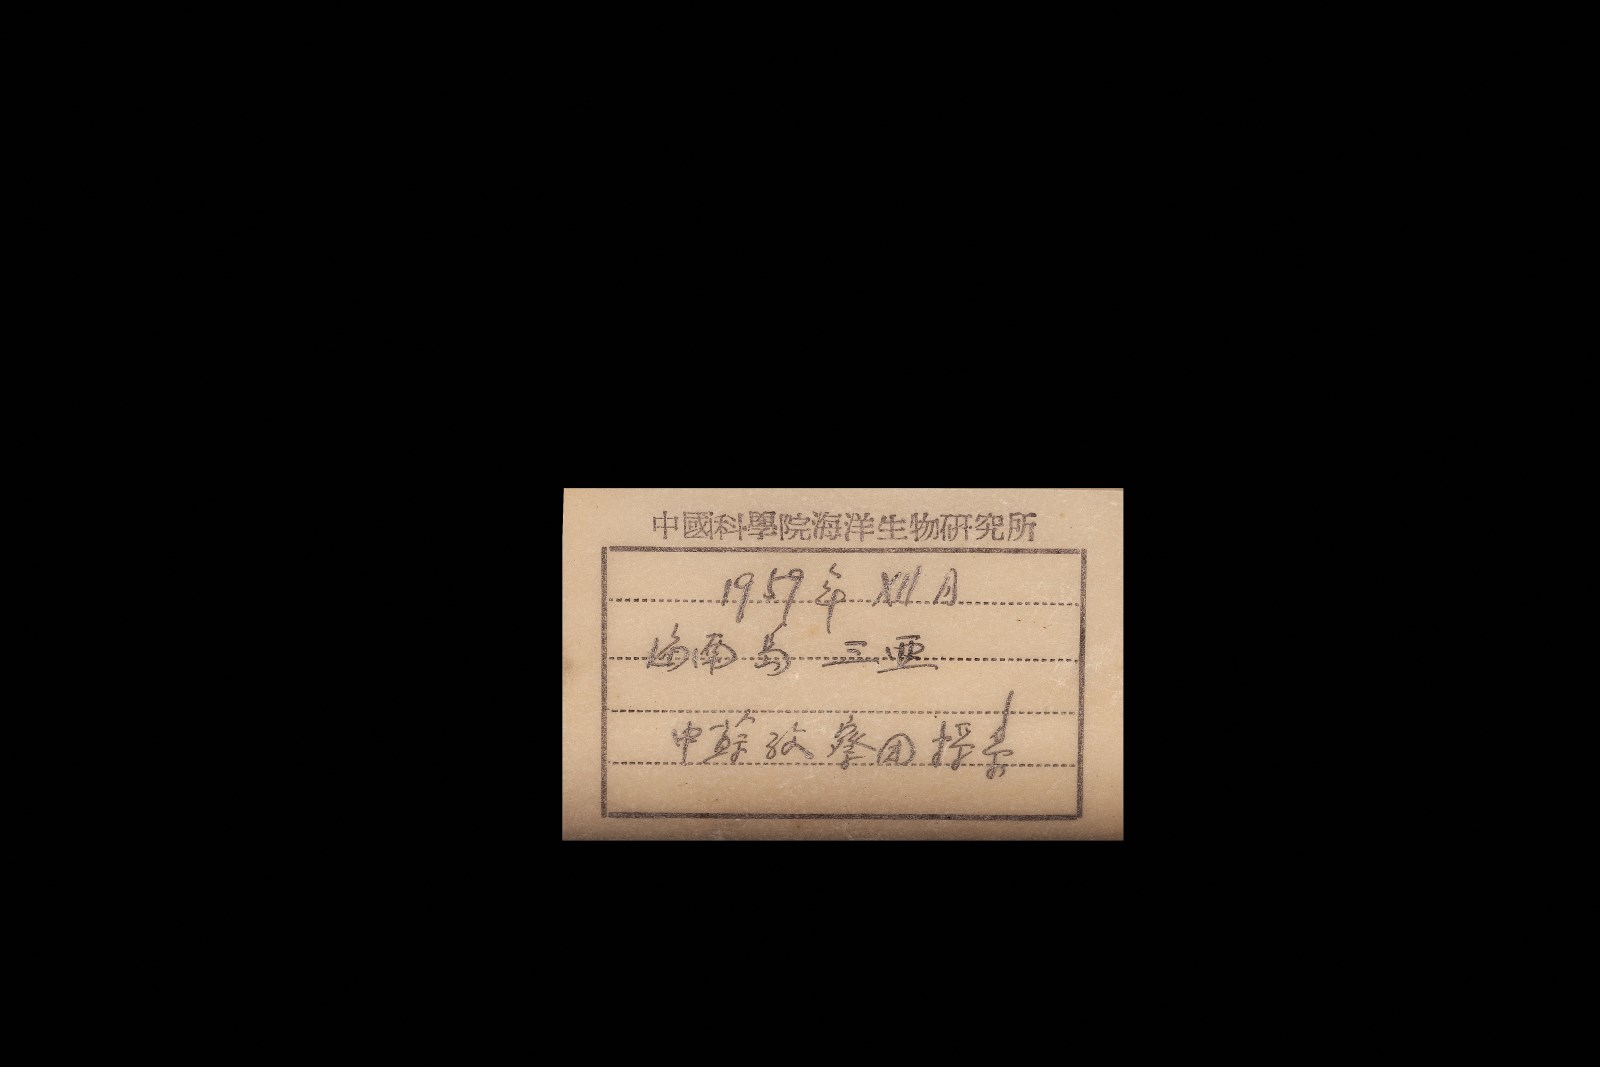 中國科學院海洋生物研究所
1959年 XII月
海南島 三亜
中蘇考察团採集